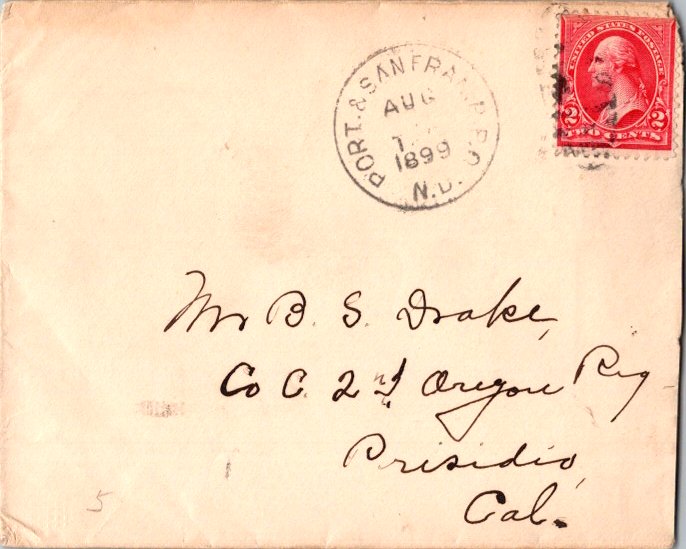 PORT. & SAN FRAN. R.P.O.
AUG
1899
N.D.
UNITED STATES POSTAGE
2 2
TWO CENTS
Mr B. S. Drake,
Co C. 2nd Oregon Reg
Presidio,
Cal.
5